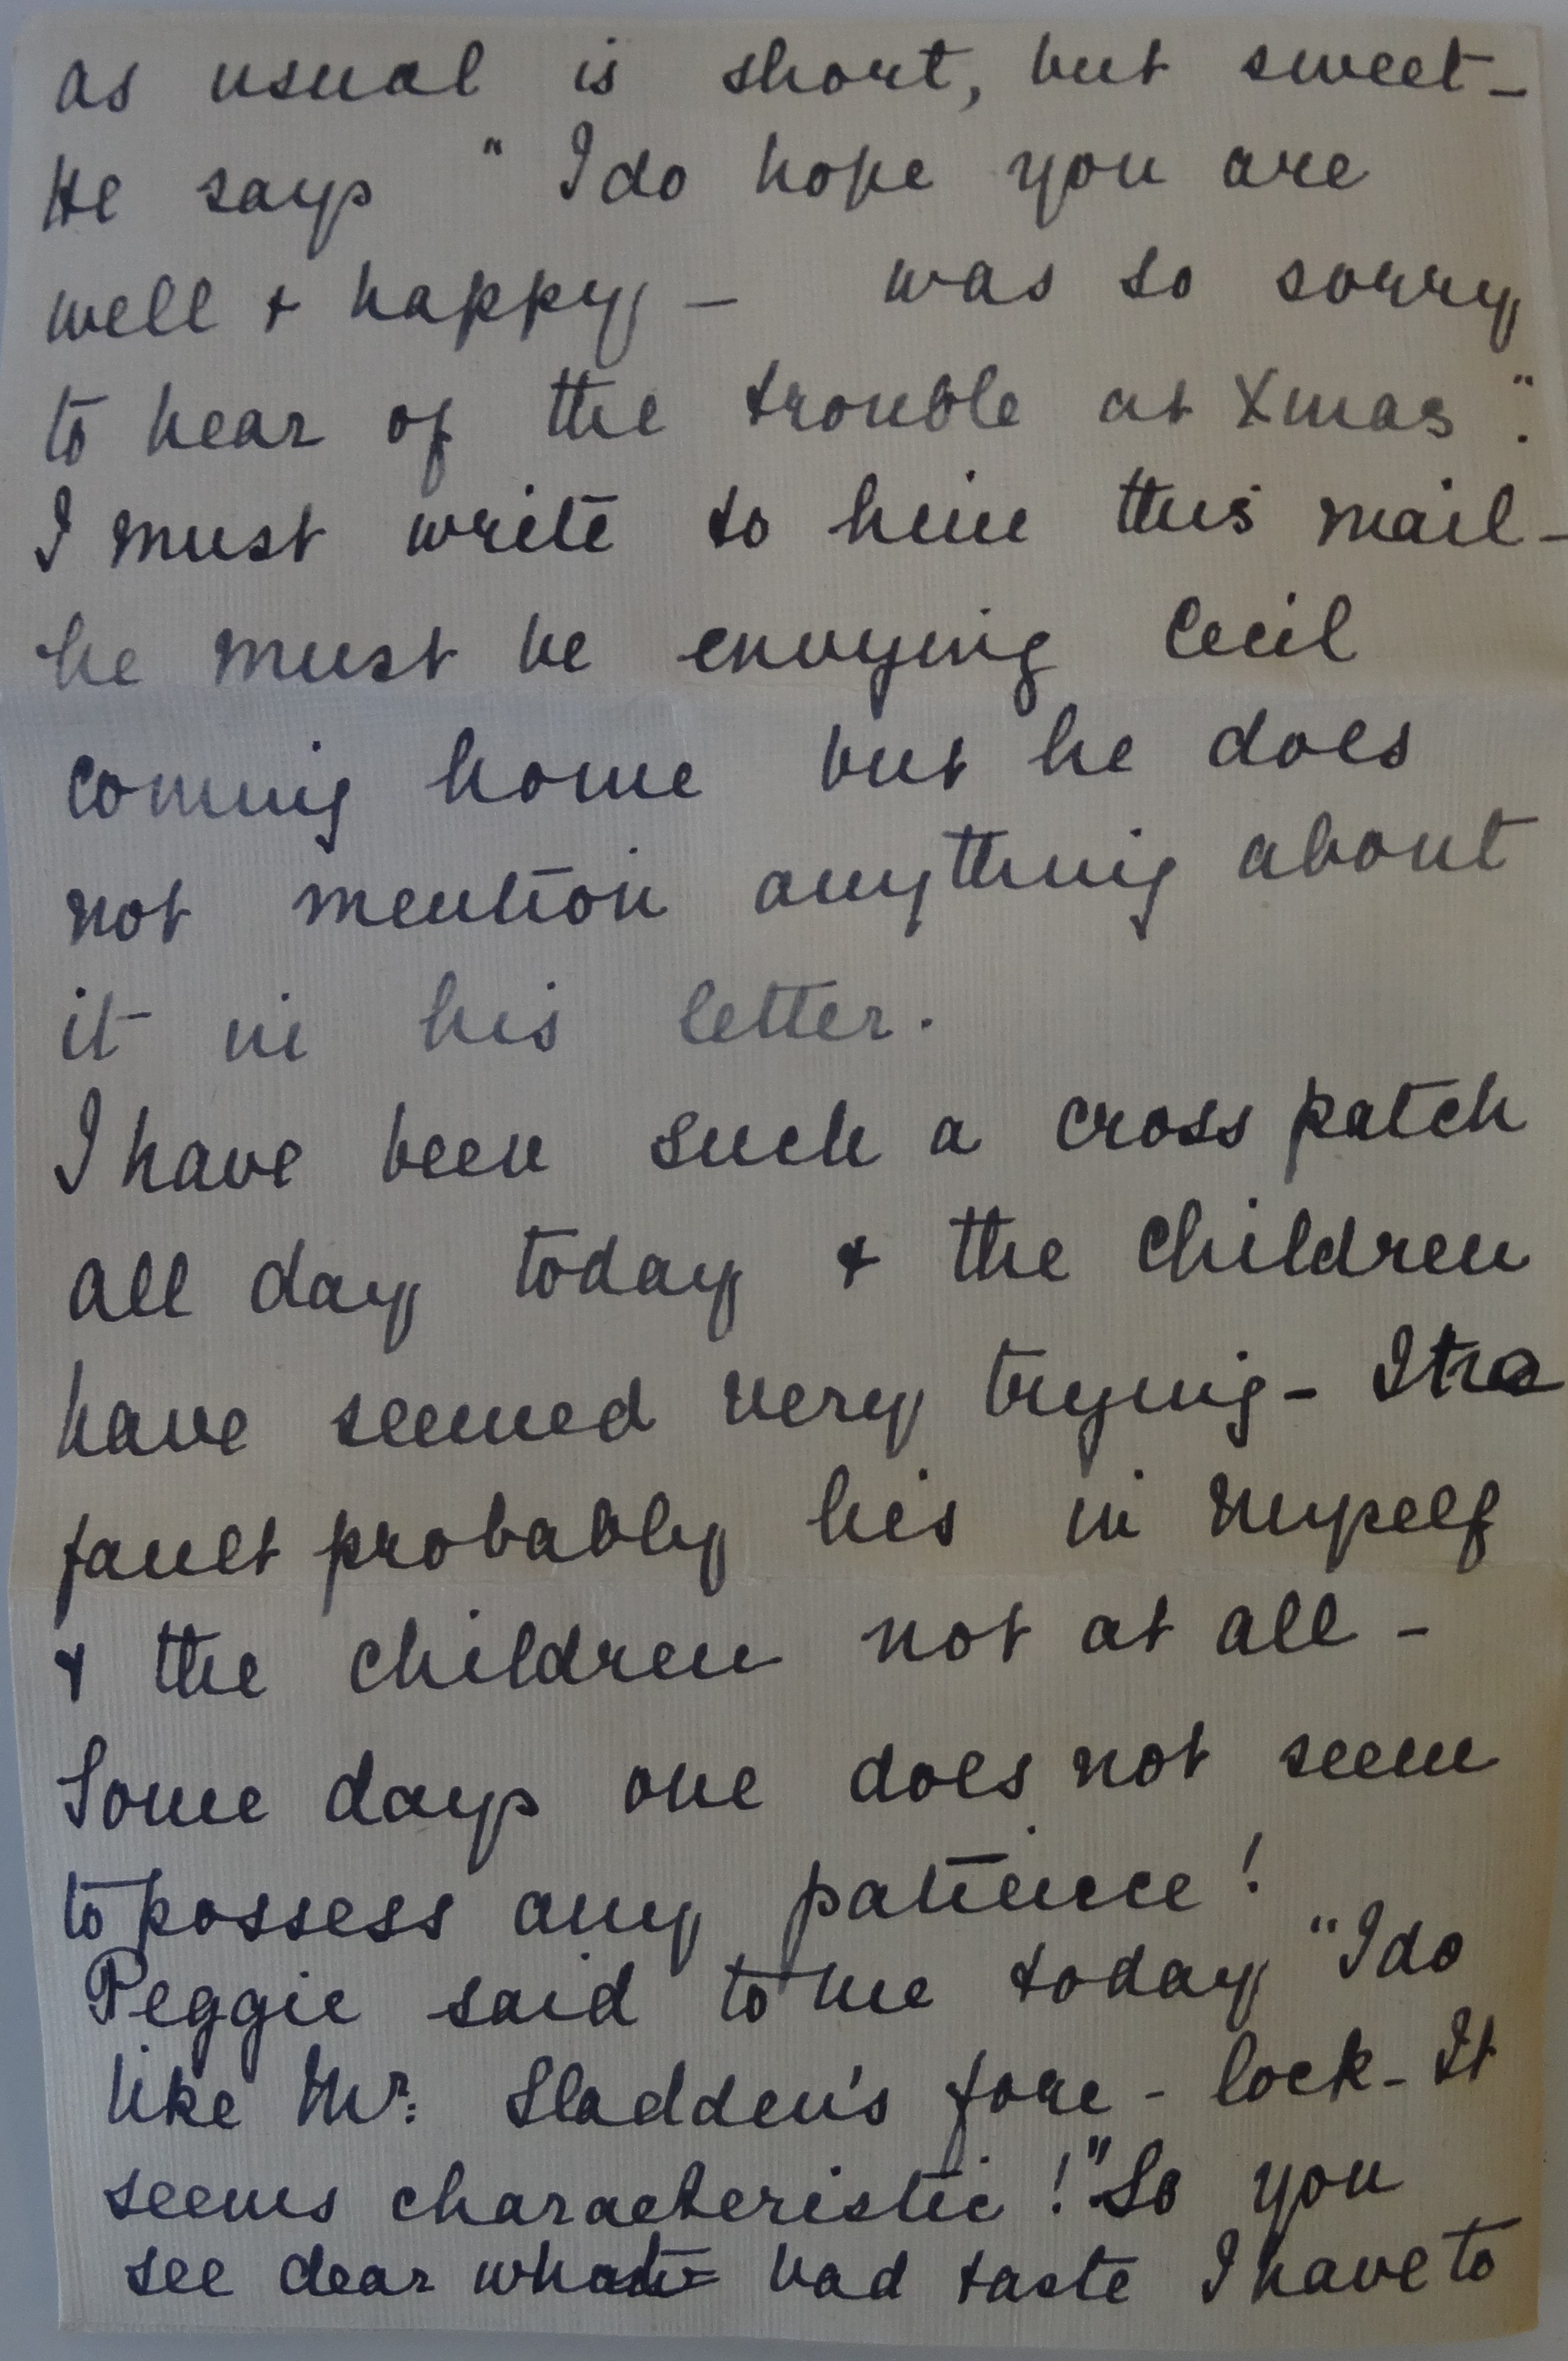 as usual is short, but sweet -
He says " I do hope you are
well + happy - was so sorry
to hear of the trouble at Xmas ".
I must write to him this mail -
he must be envying Cecil
coming home but he does
not mention anything about
it in his letter.
I have been such a cross patch
all day today + the children
have seemed very trying - The
fault probably lies in myself
+ the children not at all -
Some days one does not seem
to possess any patience !
Peggie said to me today "I do
like Mr. Sladden's fore - lock - It
seems characteristic !" So you
see dear what bad taste I have to